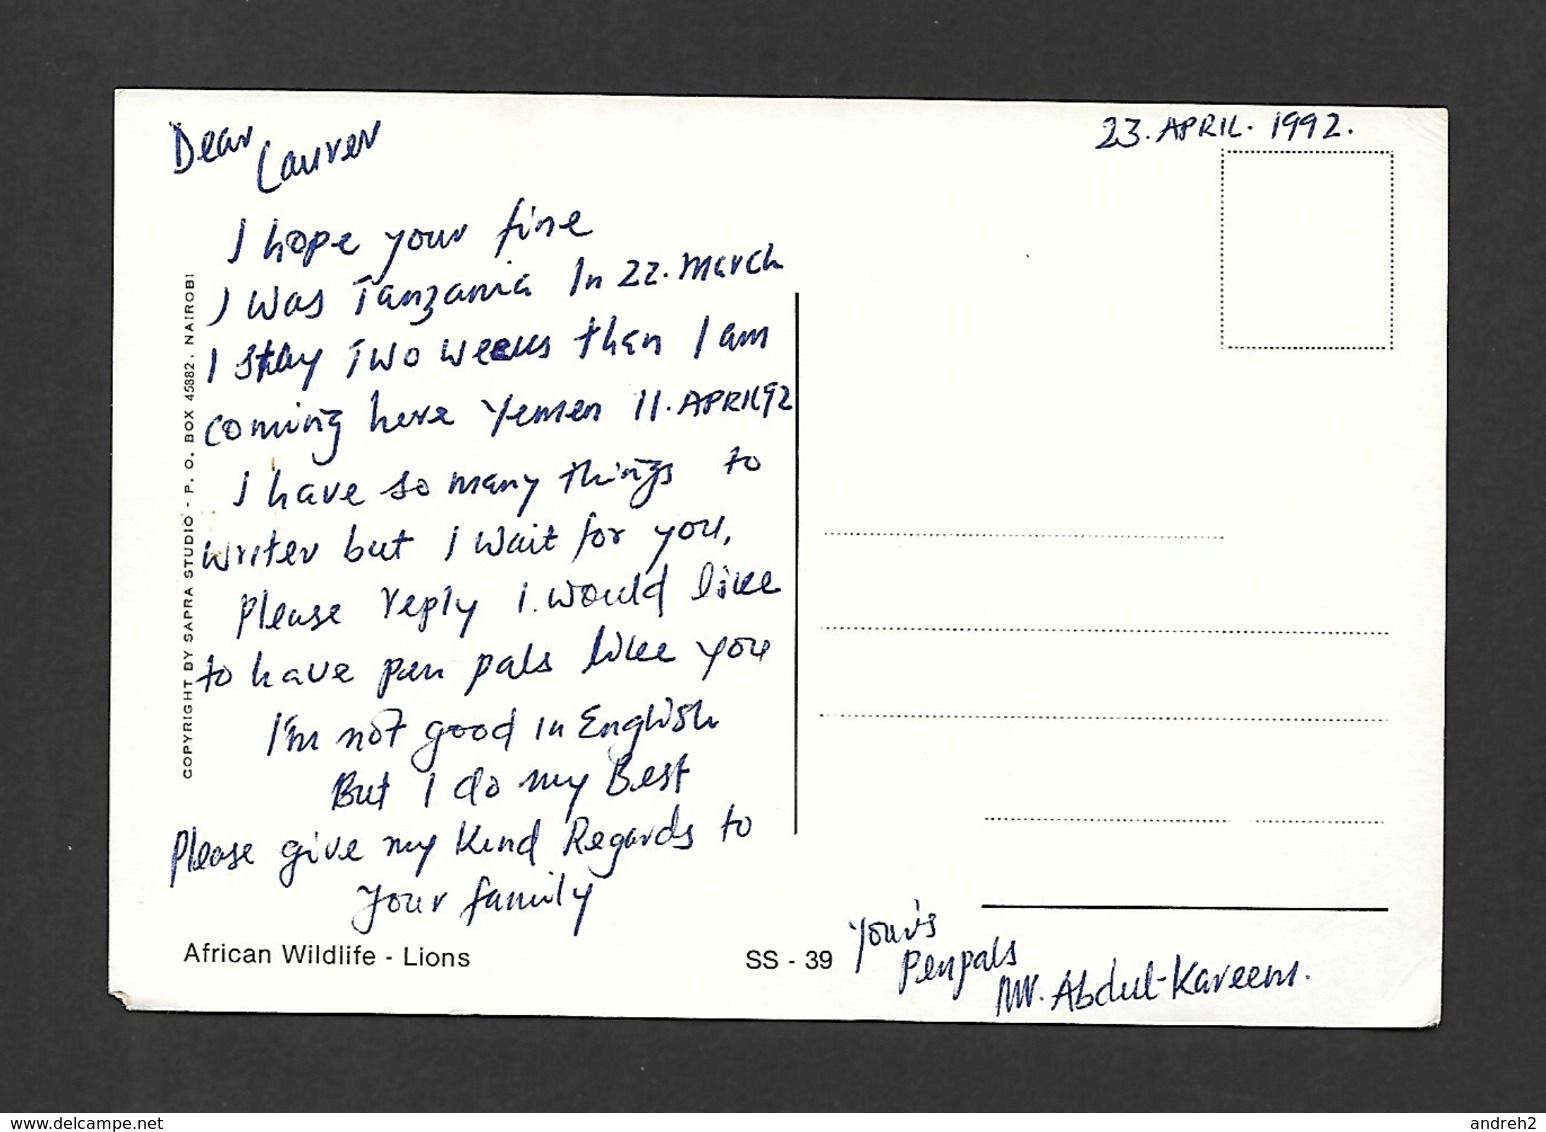 23. APRIL. 1992.
Dear Lauren
I hope your fine
I was Tanzania In 22. march
I stay Two weeks then I am
coming here Yemen 11. APRIL 92
I have so many things to
writer but I wait for you,
please reply I. would like
to have pen pals like you
I'm not good in English
But I do my Best
please give my Kind Regards to
your family
Your's
Penpals
Mr. Abdul-Kareem.
COPYRIGHT BY SAPRA STUDIO - P. O. BOX 45882. NAIROBI
African Wildlife - Lions
SS - 39
www.delcampe.net
andreh2